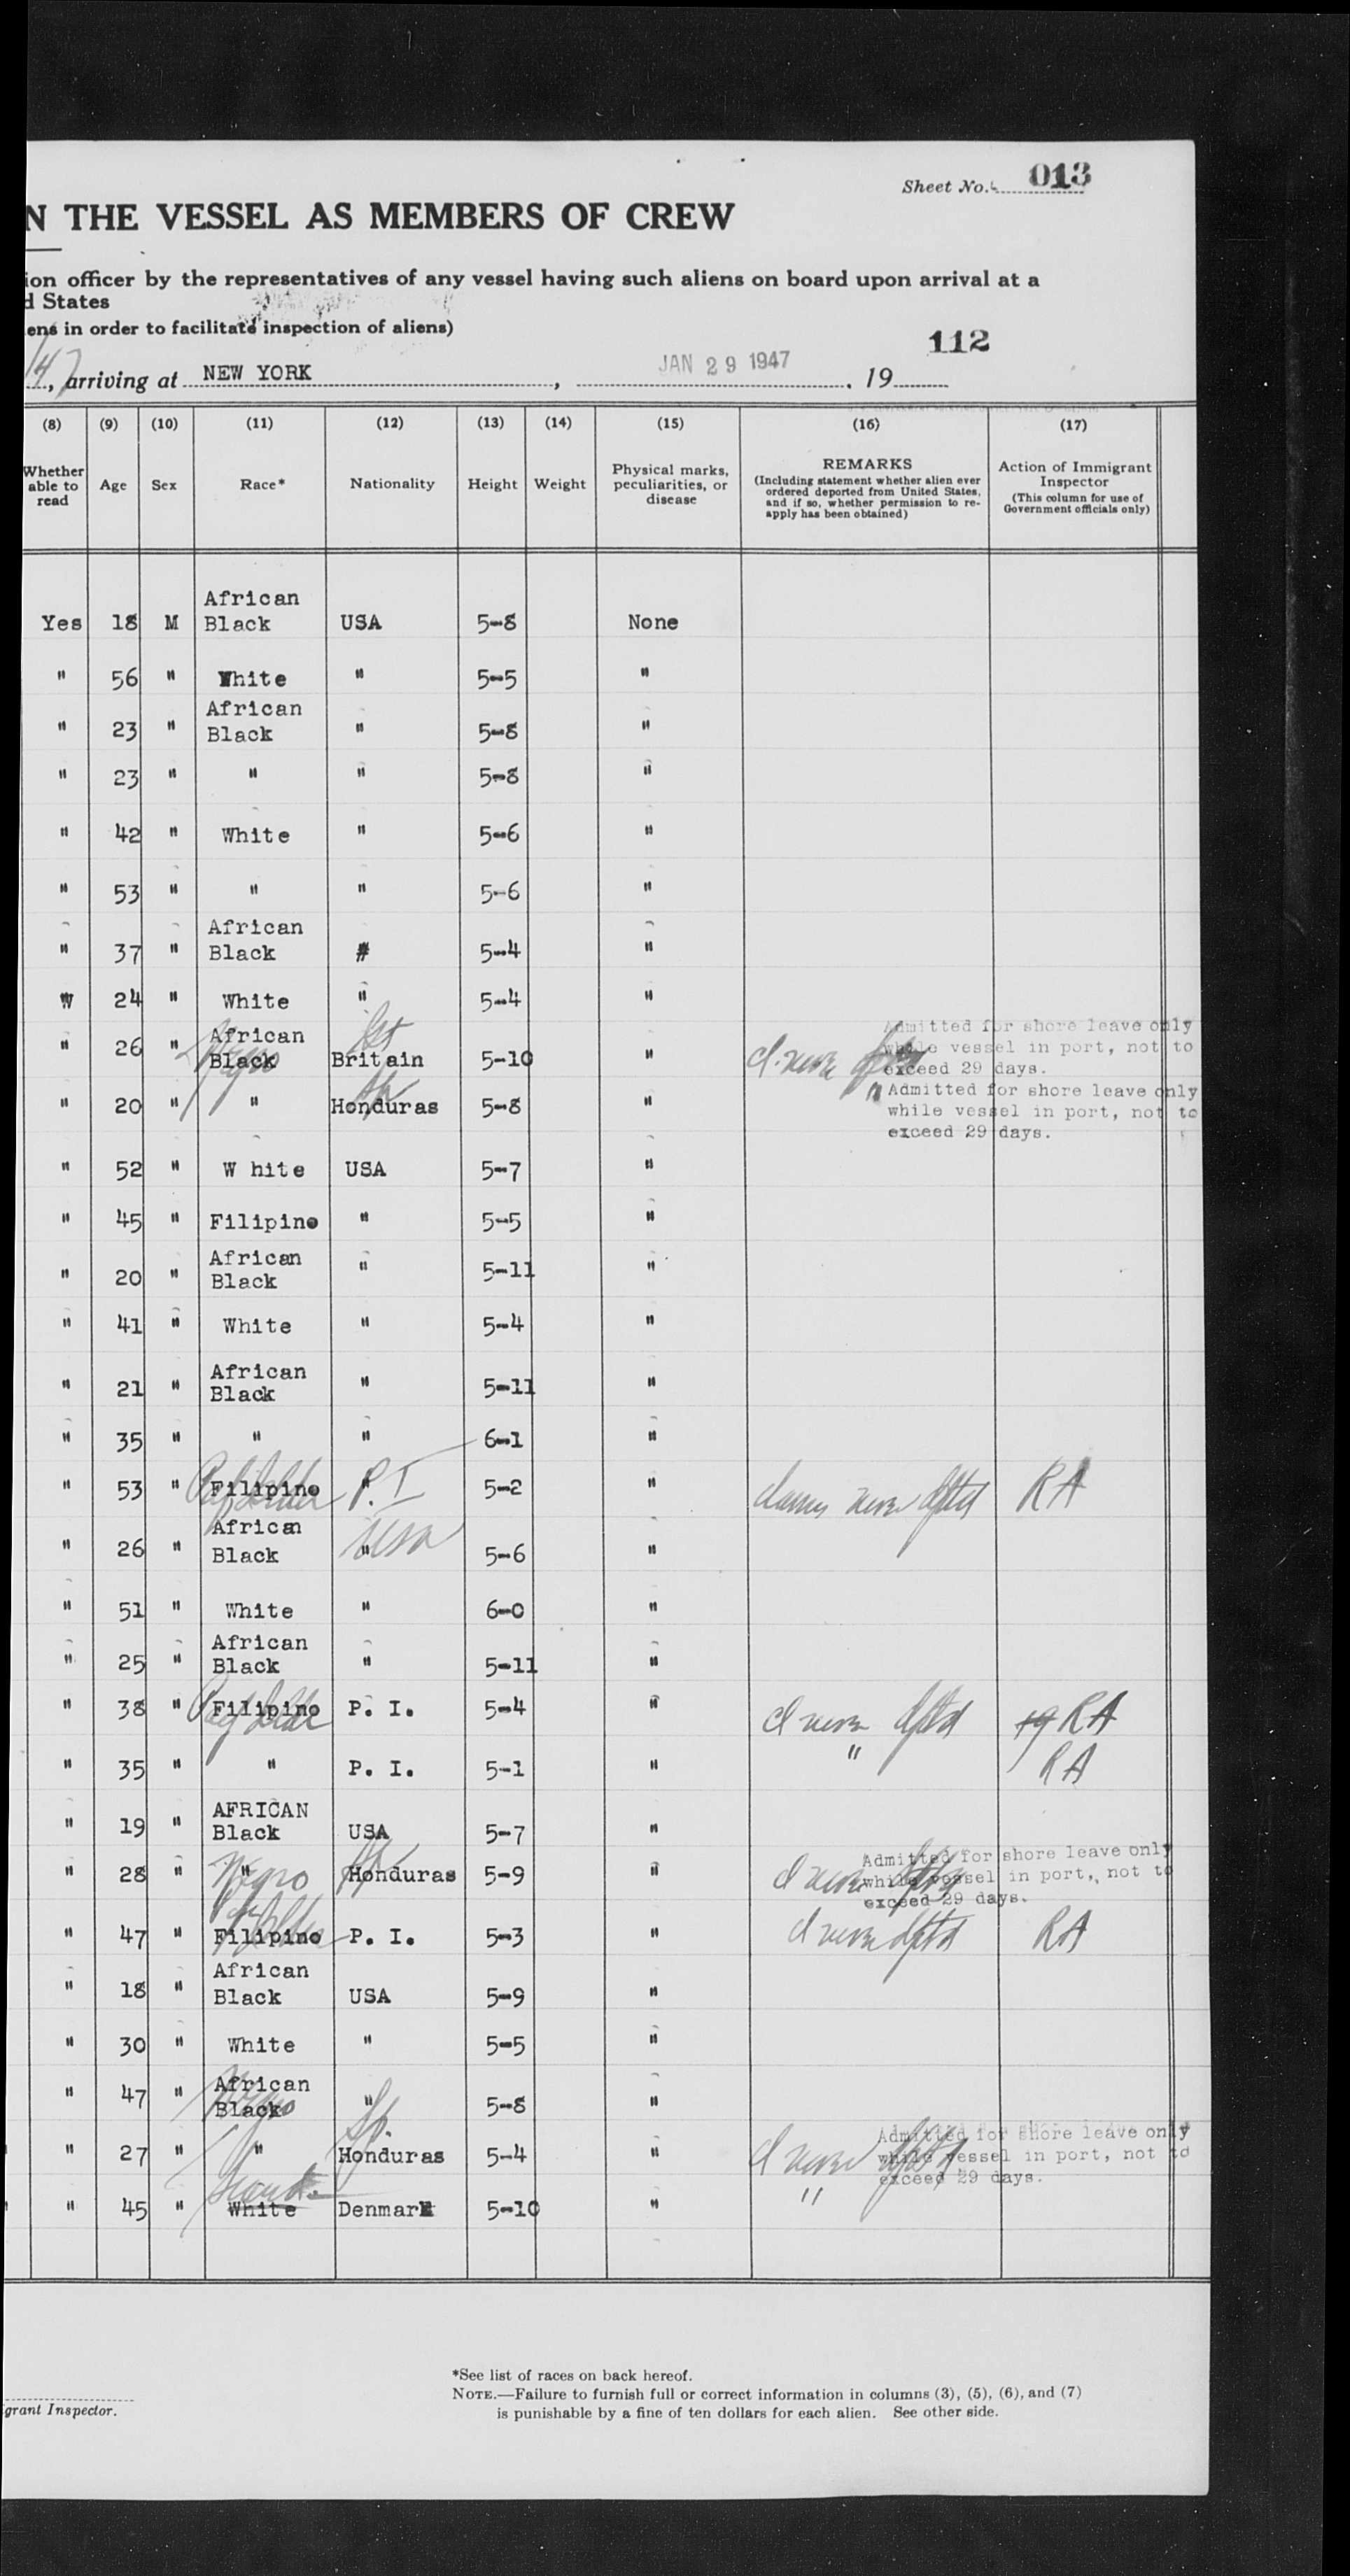 Sheet No. 013
N THE VESSEL AS MEMBERS OF CREW
ion officer by the representatives of any vessel having such aliens on board upon arrival at a
d States
ens in order to facilitate inspection of aliens)
112
/47, arriving at NEW YORK, JAN 29 1947, 19
(8) (9) (10) (11) (12) (13) (14) (15) (16) (17)
Whether able to read Age Sex Race* Nationality Height Weight Physical marks, peculiarities, or disease REMARKS (Including statement whether alien ever ordered deported from United States, and if so, whether permission to re-apply has been obtained) Action of Immigrant Inspector (This column for use of Government officials only)
African
Yes 18 M Black USA 5-8 None
" 56 " White " 5-5 "
African
" 23 " Black " 5-8 "
" 23 " " " 5-8 "
" 42 " White " 5-6 "
" 53 " " " 5-6 "
African
" 37 " Black # 5-4 "
W 24 " White " 5-4 "
African
" 26 " Black Negro Britain 5-10 " Admitted for shore leave only
while vessel in port, not to
exceed 29 days.
" 20 " " Honduras 5-8 " " Admitted for shore leave only
while vessel in port, not to
exceed 29 days.
" 52 " W hite USA 5-7 "
" 45 " Filipino " 5-5 "
African
" 20 " Black " 5-11 "
" 41 " White " 5-4 "
African
" 21 " Black " 5-11 "
" 35 " " " 6-1 "
" 53 " Filipino " P.I 5-2 " never dptd RA
African
" 26 " Black " USA 5-6 "
" 51 " White " 6-0 "
African
" 25 " Black " 5-11 "
" 38 " Filipino P. I. 5-4 " cl never dptd RA
" 35 " " P. I. 5-1 " " RA
AFRICAN
" 19 " Black USA 5-7 "
" 28 " " Negro Honduras 5-9 " cl never Admitted for shore leave only
while vessel in port, not to
exceed 29 days.
" 47 " Filipino P. I. 5-3 " cl never dptd RA
African
" 18 " Black USA 5-9 "
" 30 " White " 5-5 "
African
" 47 " Black Negro " 5-8 "
" 27 " " Honduras 5-4 " cl never dptd Admitted for shore leave only
while vessel in port, not to
exceed 29 days.
" 45 " White Scand. Denmark 5-10 " "
*See list of races on back hereof.
NOTE.—Failure to furnish full or correct information in columns (3), (5), (6), and (7)
is punishable by a fine of ten dollars for each alien. See other side.
grant Inspector.